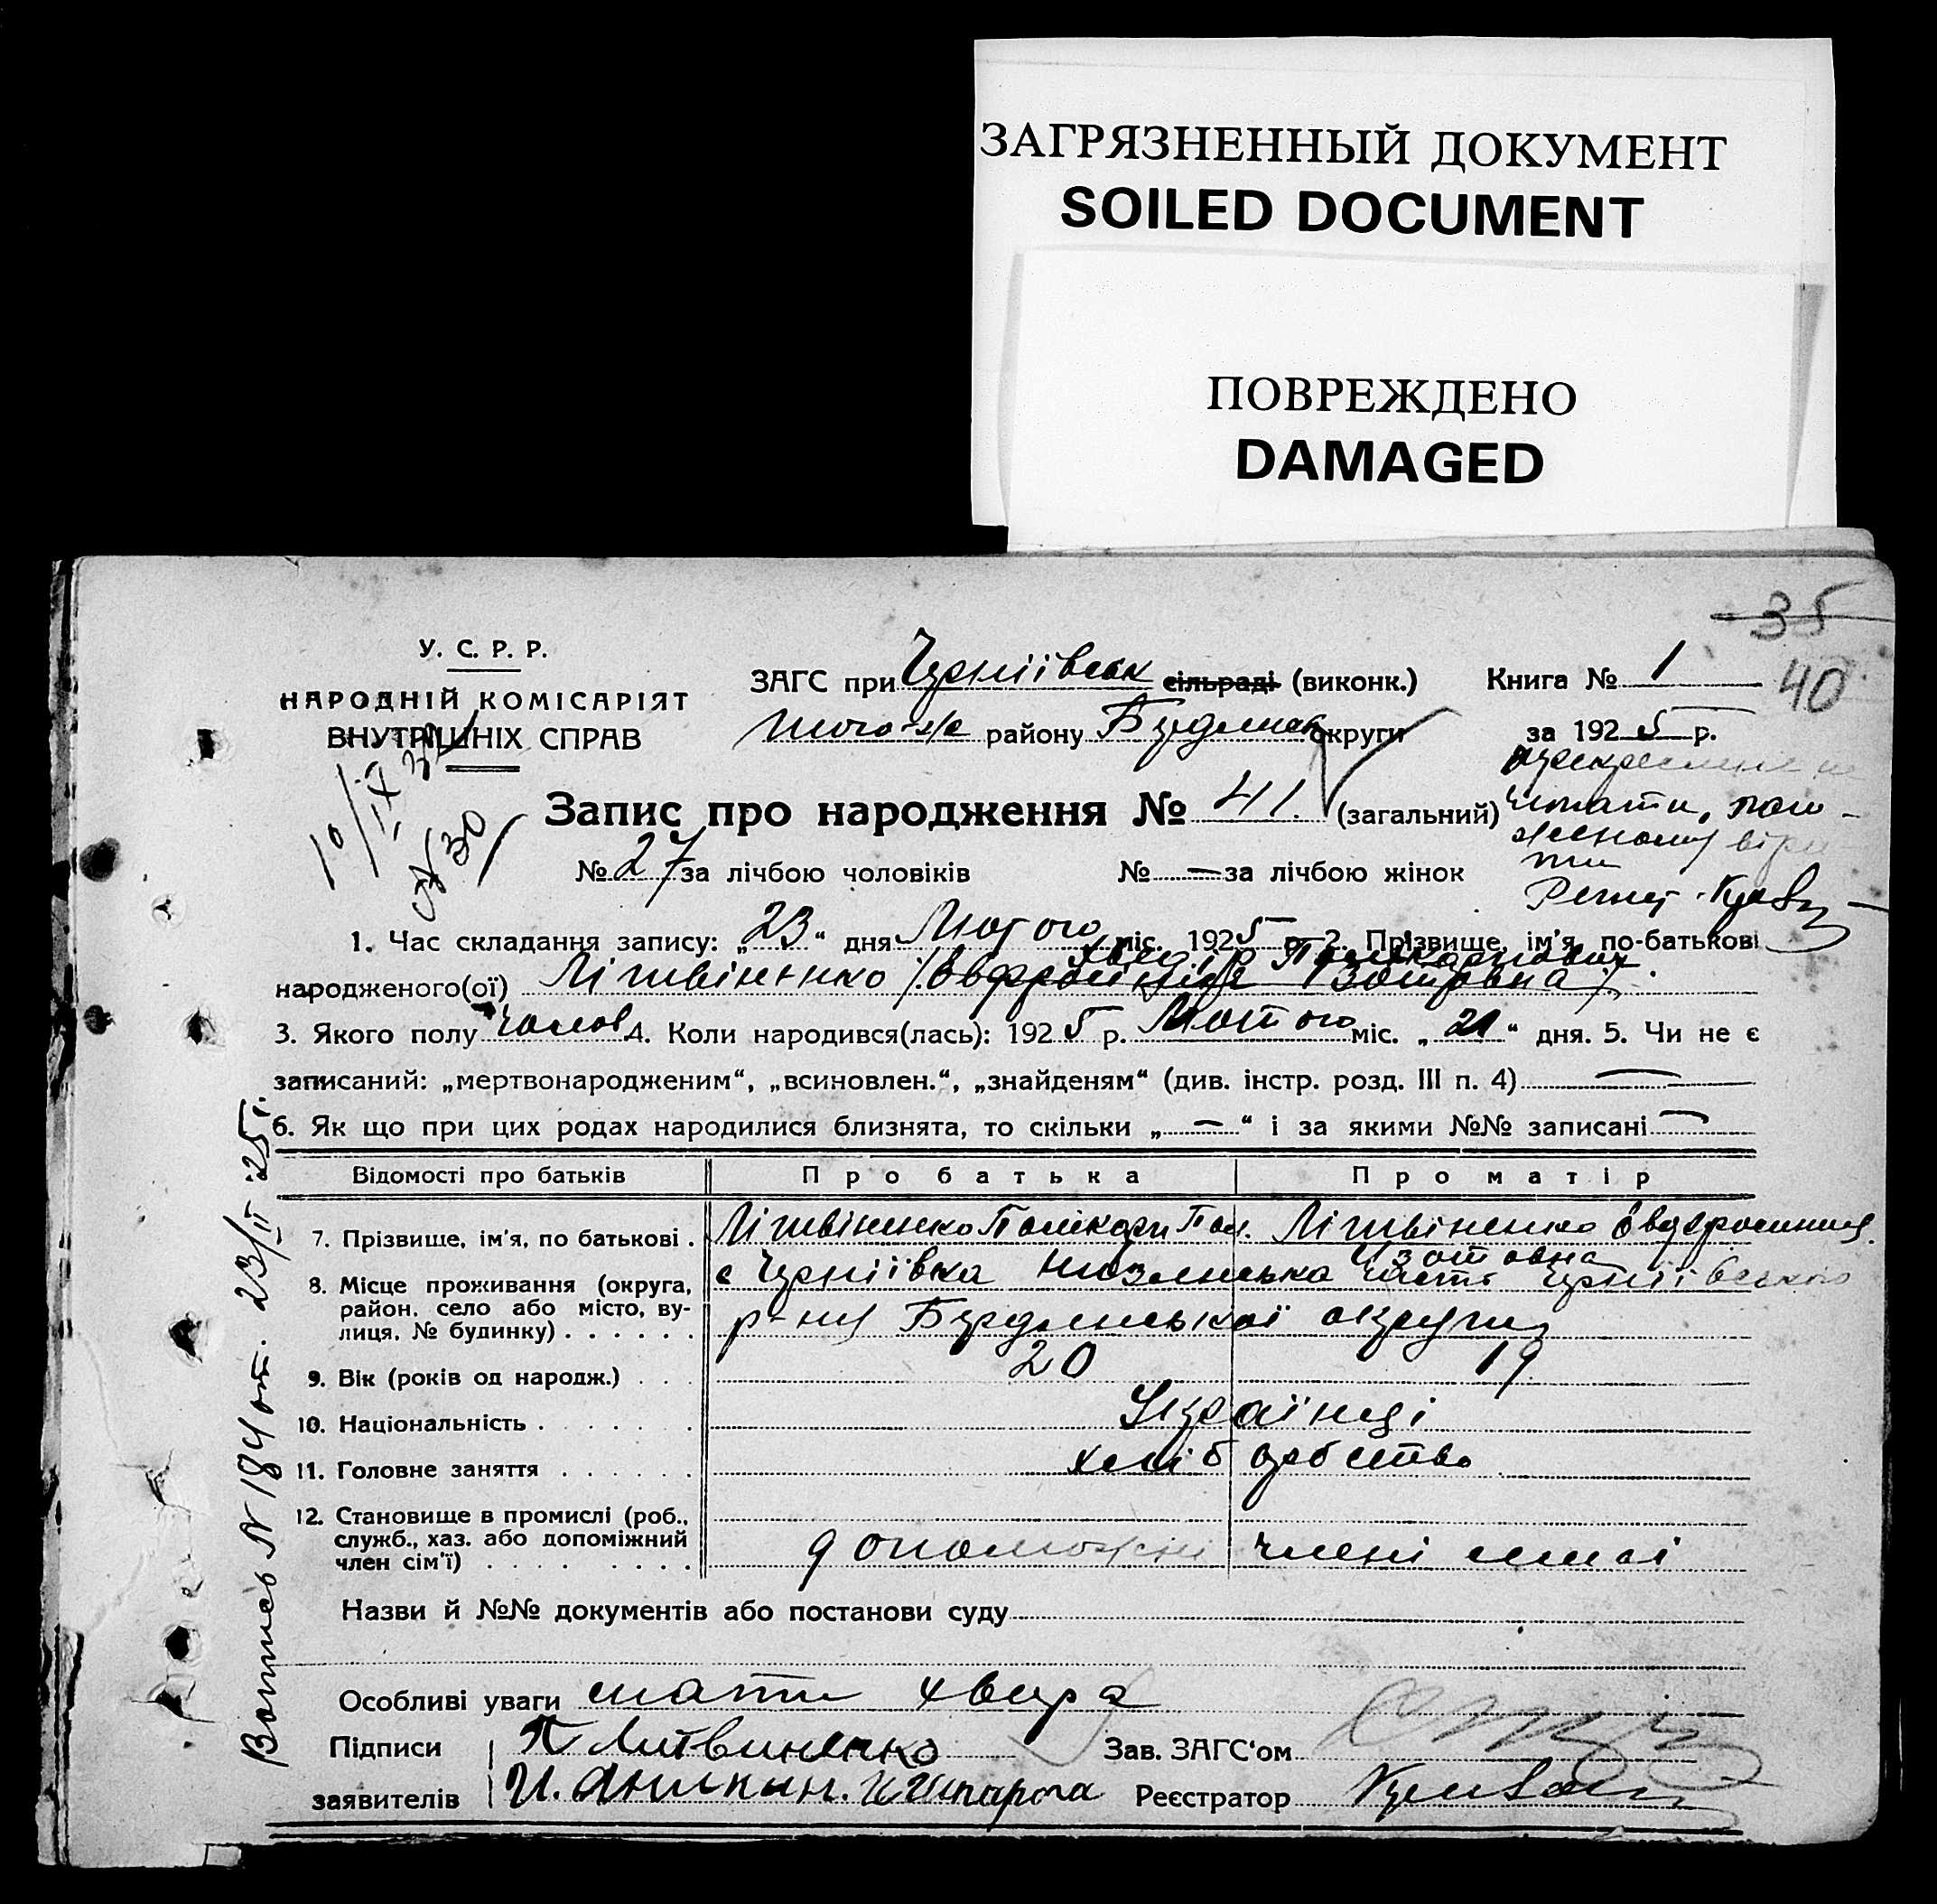 ЗАГРЯЗНЕННЫЙ ДОКУМЕНТ
SOILED DOCUMENT
ПОВРЕЖДЕНО
DAMAGED
35
40
У. С. Р. Р.
НАРОДНІЙ КОМІСАРІЯТ
ВНУТРІШНІХ СПРАВ
ЗАГС при Черніївськ сільраді (виконк.)
того-же району Бердянськ округи
Книга № 1
за 1925 р.
Запис про народження № 41. (загальний)
№ 27 за лічбою чоловіків № — за лічбою жінок
читати,
1. Час складання запису: „23“ дня Лютого міс. 1925 р. 2. Прізвище, ім'я, по-батькові
Полікарпович
народженого(ої) Літвіненко
3. Якого полу чолов 4. Коли народився(лась): 1925 р. Лютого міс. „21“ дня. 5. Чи не є
записаний: „мертвонародженим“, „всиновлен.“, „знайденям“ (див. інстр. розд. III п. 4) —
6. Як що при цих родах народилися близнята, то скільки „—“ і за якими №№ записані —
Відомості про батьків Про батька Про матір
7. Прізвище, ім'я, по батькові . Літвіненко Полікарп Пол. Літвіненко
Изотовна
8. Місце проживання (округа, с Черніївка
район, село або місто, ву-
лиця, № будинку) . . . . . . р-ну Бердянської округи
9. Вік (років од народж.) . . . 20 19
10. Національність . . . . . . . Українці
11. Головне заняття . . . . . . хліборобство
12. Становище в промислі (роб.,
служб., хаз. або допоміжний
член сім'ї) . . . . . . . . . допоможні члені сімї
Назви й №№ документів або постанови суду
Особливі уваги мати хвора
Підписи П Литвиненко Зав. ЗАГС'ом
заявителів Реєстратор
Вопись N 184 от. 23/II 25 г.